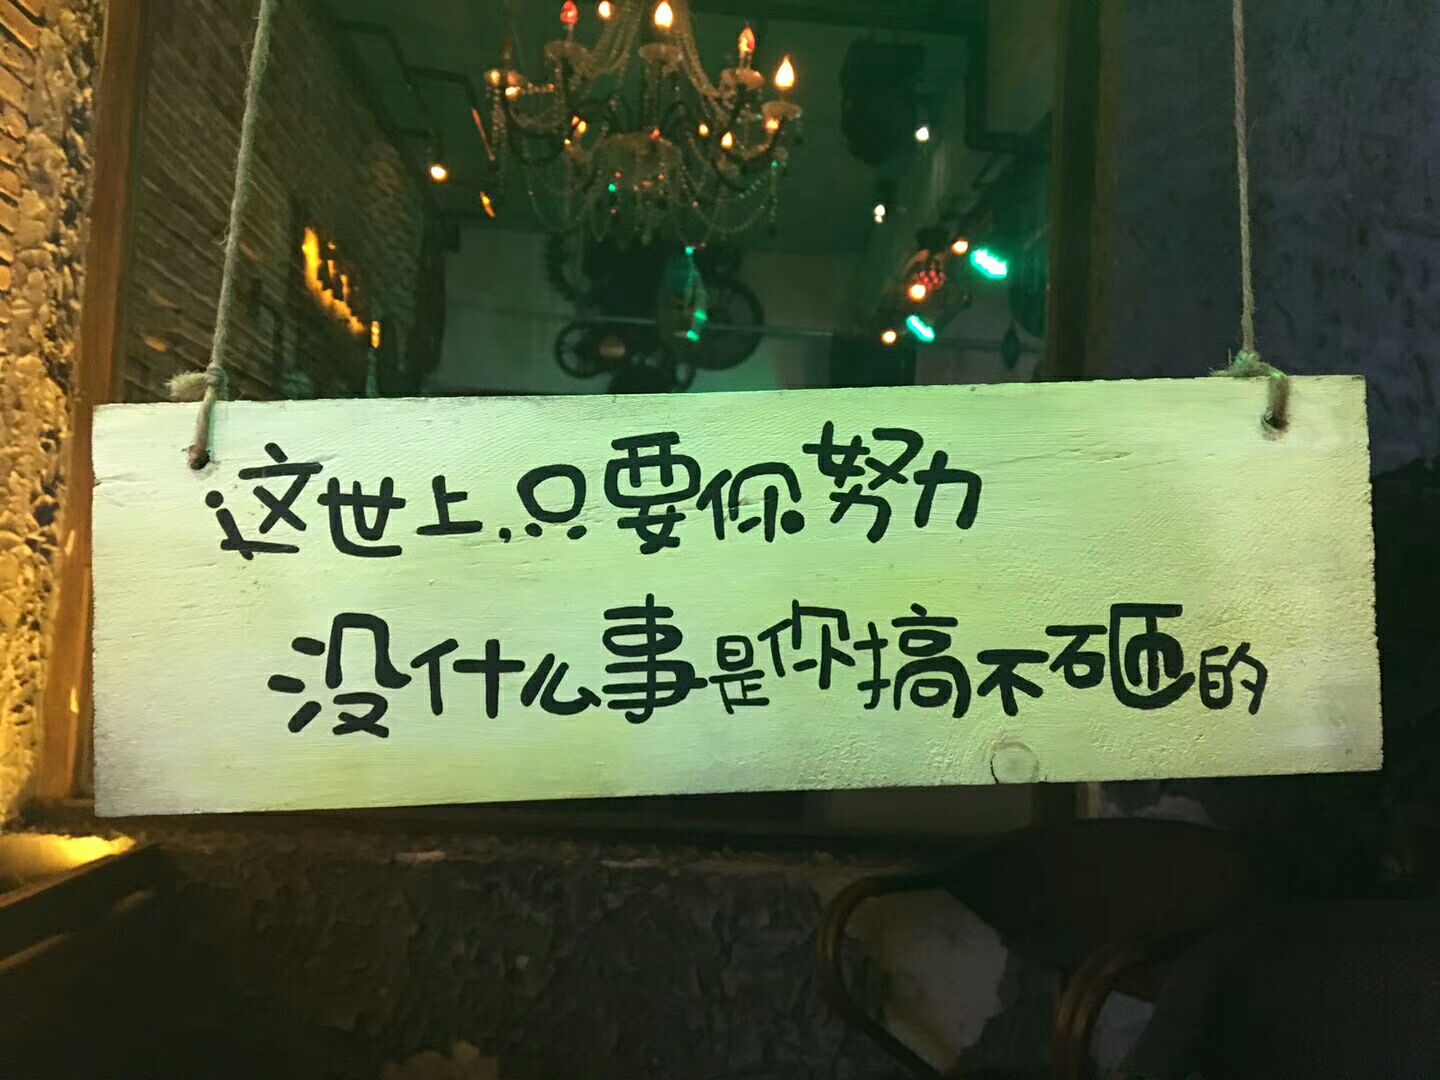 这世上,只要你努力
没什么事是你搞不砸的